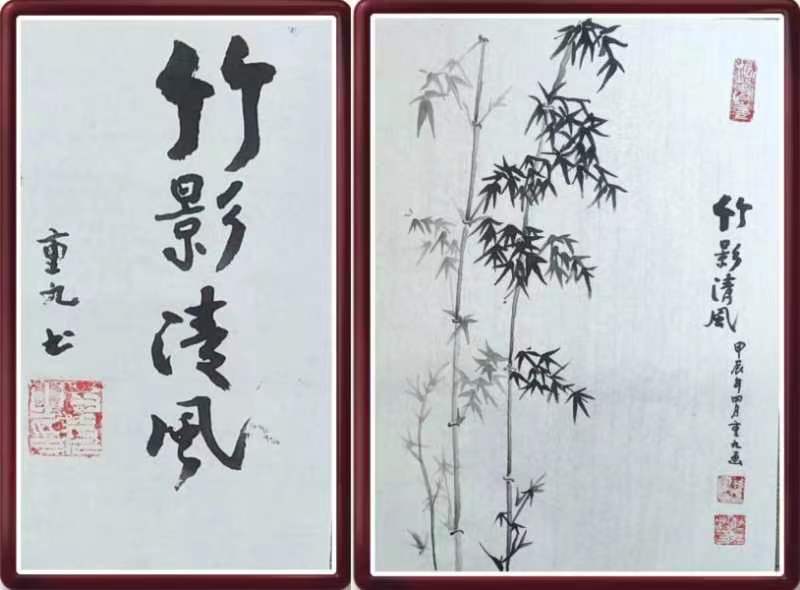 竹影清风
重九书
竹影清风
甲辰年四月重九画